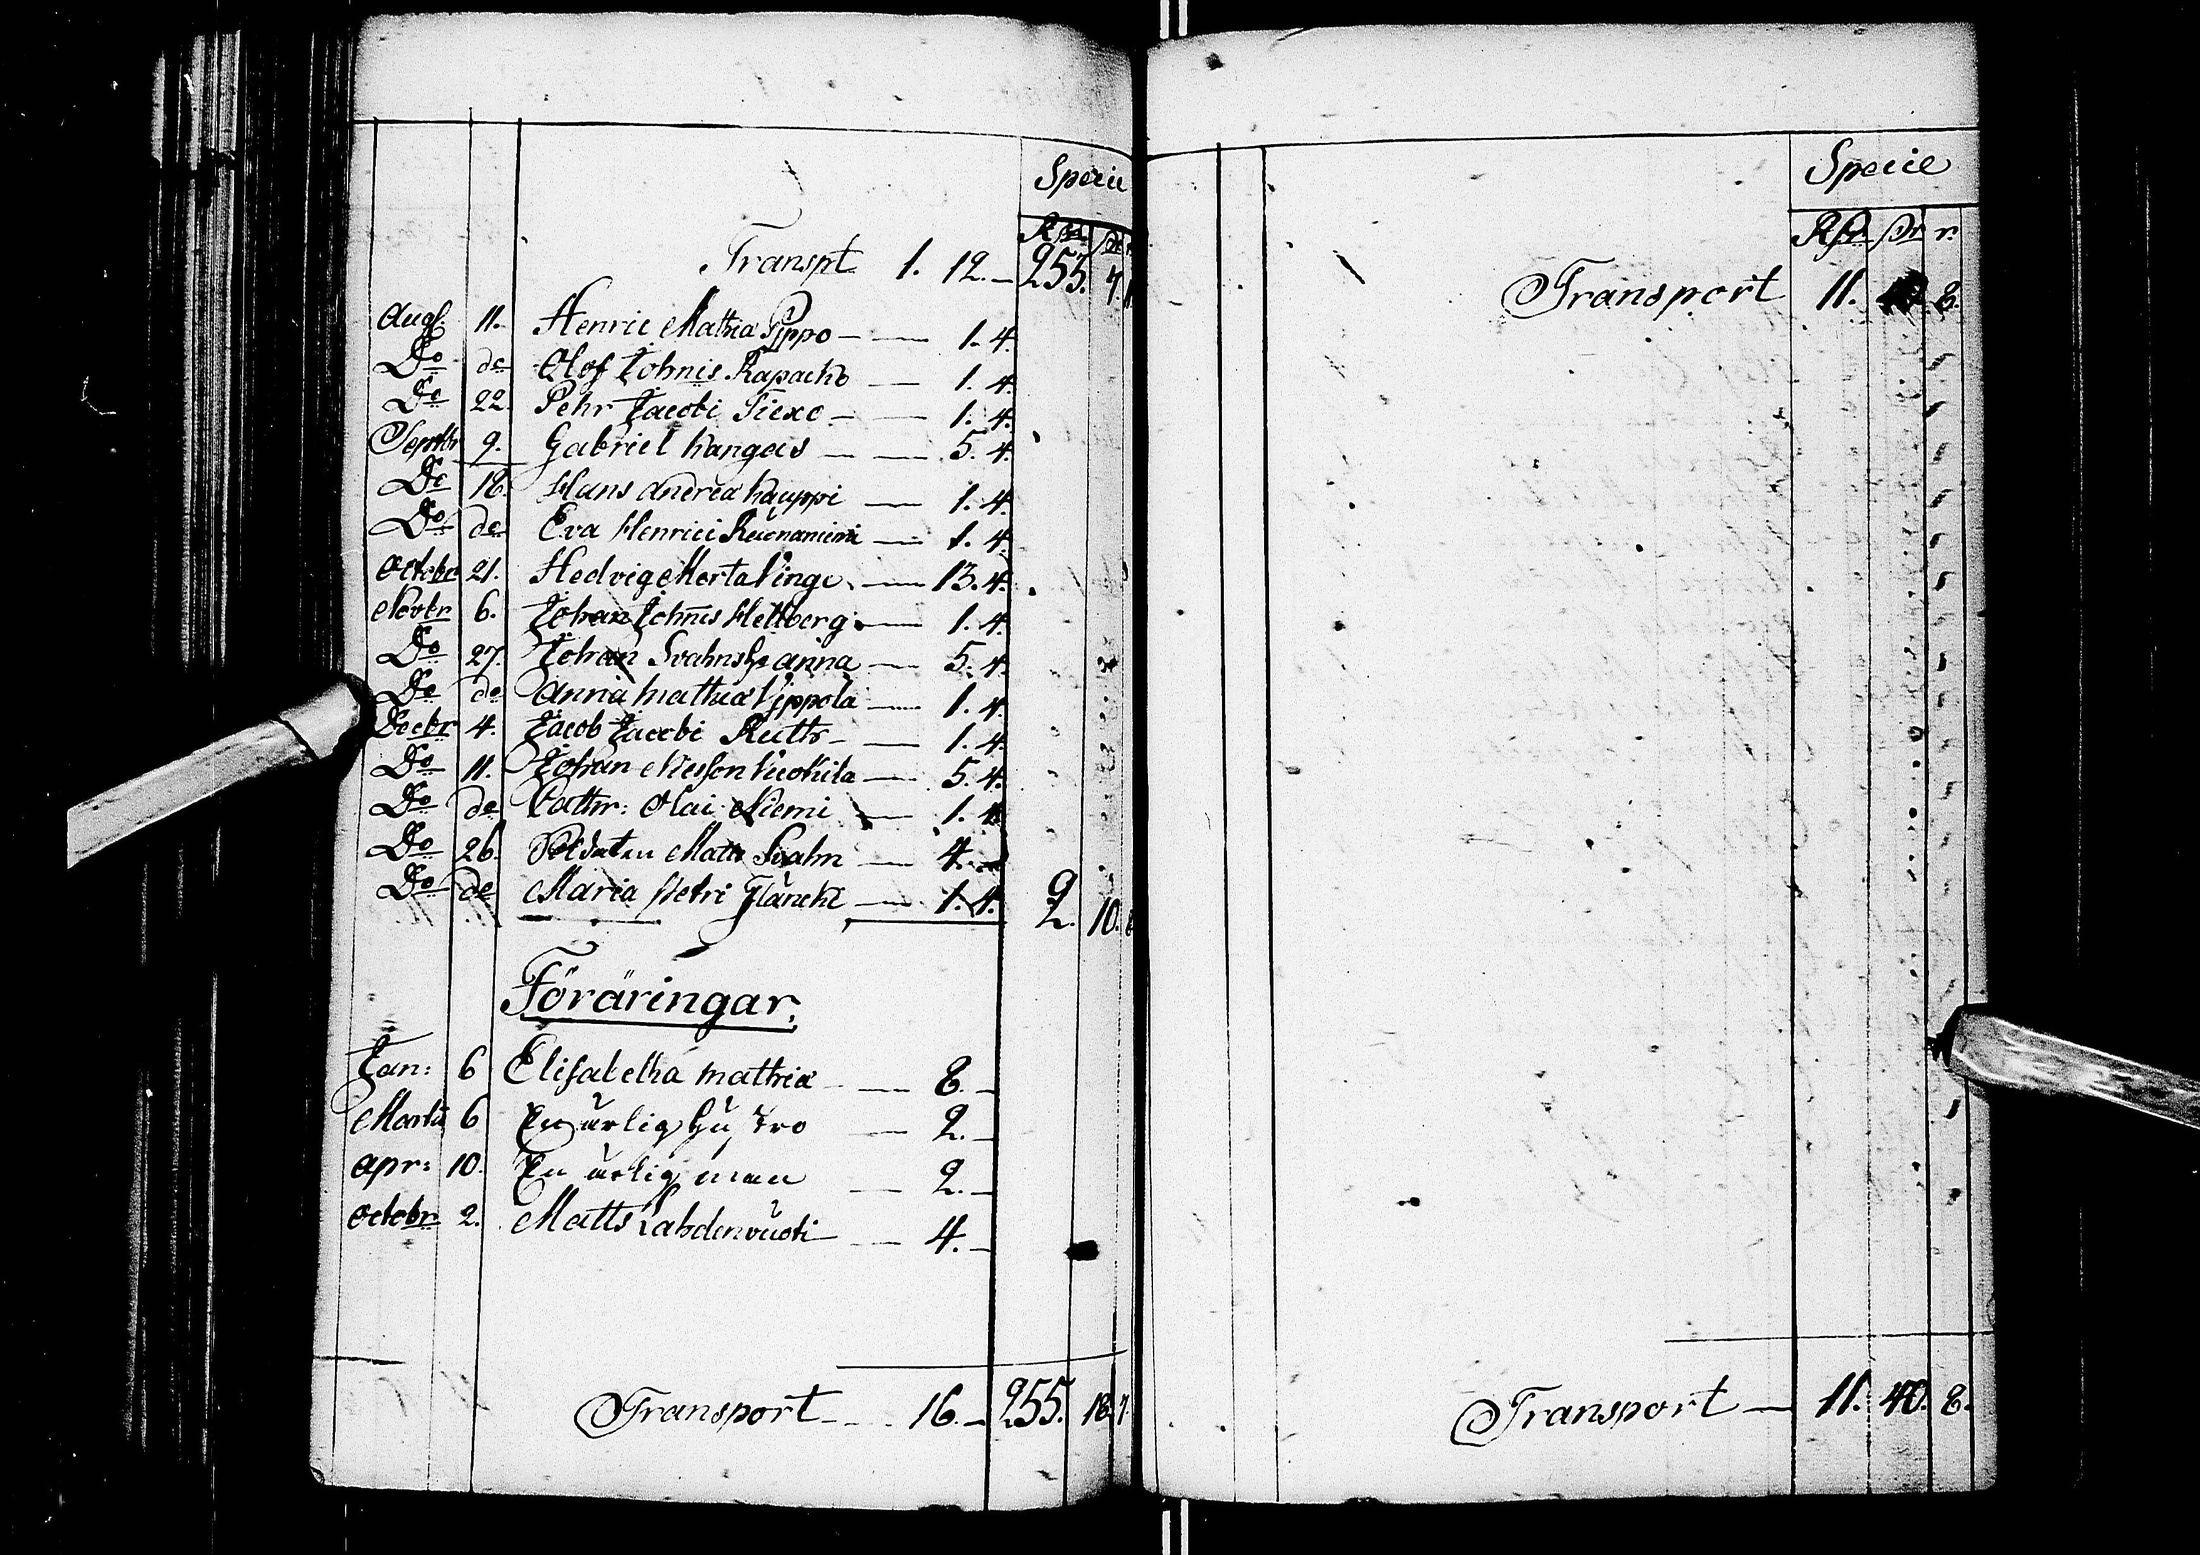 Specie
Rd. sk. r.
Transpt. 1. 12. — 253. 7.
Aug. 11. Henric Mathiæ Pippo — 1. 4.
Do do Olof Johnis Kapacko — 1. 4.
Do 22. Pehr Jacobi Tiexo — 1. 4.
Septbr 9. Gabriel Kangas — 5. 4.
Do 18. Hans Andreæ Kauppi — 1. 4.
Do do Eva Henrici — 1. 4.
Octobr 21. Hedvig Merta Pinge — 13. 4.
Novbr 6. Johan Johnis Hellberg — 1. 4.
Do 27. Johan Svahns h. Anna — 5. 4.
Do do Anna Mathiæ — 1. 4.
Decbr 4. Jacob Jacobi Rutts — 1. 4.
Do 11. Johan — 5. 4.
Do do Cathr: Olai Niemi — 1. 4.
Do 26. Soldaten Matts Svahn — 4. —
Do do Maria Petri — 1. 4. 2. 10.
Föräringar.
Jan: 6 Elisabetha Mathiæ — 8. —
Martii 6 En ärlig hustro — 2. —
Apr: 10. En ärlig man — 2. —
Octobr 2. Matts Lahdenvuoti — 4. —
Transport — 16. — 255. 18.
Specie
Rd. sk. r.
Transport 11. 40. 8.
Transport — 11. 40. 8.